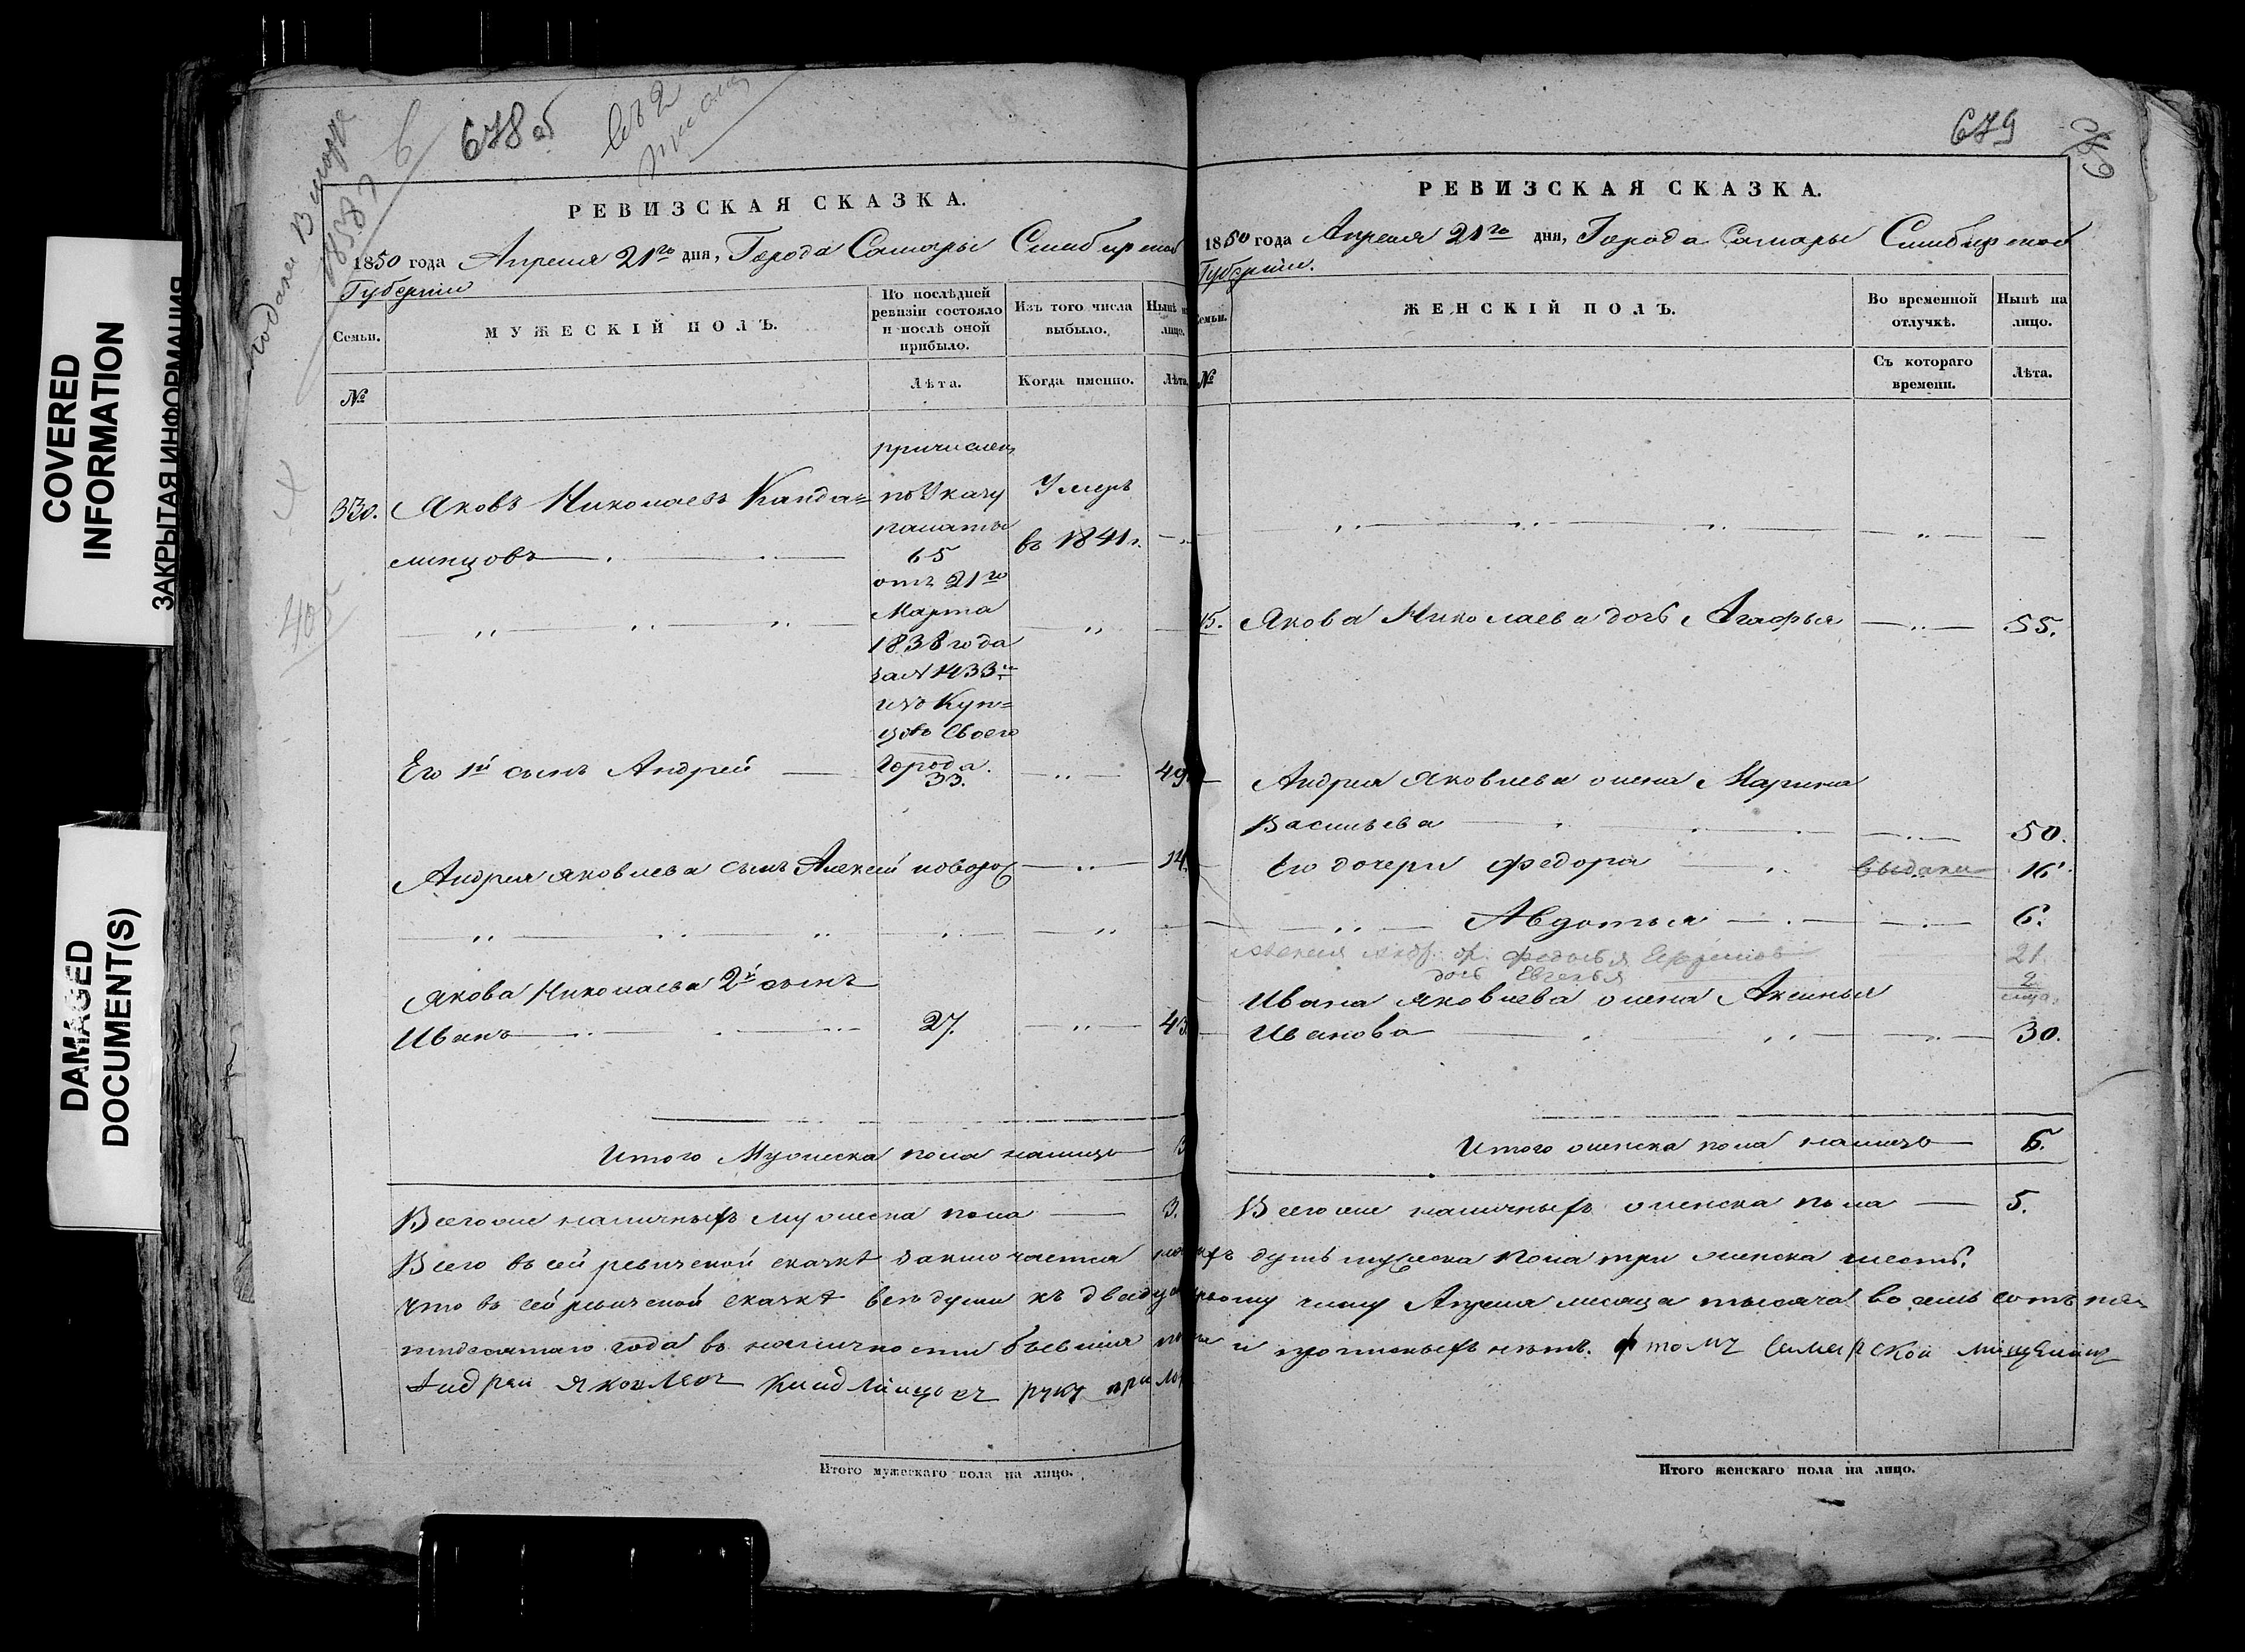 COVERED
INFORMATION
ЗАКРЫТАЯ ИНФОРМАЦИЯ
DAMAGED
DOCUMENT(S)
678 об
РЕВИЗСКАЯ СКАЗКА.
1850 года Апреля 21го дня, Города Самары Симбирской
Губернии
Семьи.
МУЖЕСКІЙ ПОЛЪ.
По послѣдней ревизіи состояло и послѣ оной прибыло.
Изъ того числа выбыло.
Нынѣ на лицо.
№
Лѣта.
Когда именно.
Лѣта.
причислен
по Указу
палаты
65
отъ 21го
Марта
1838 года
за № 1433м
изъ Куп=
цовъ своего
Города.
330. Яковъ Николаевъ Канда=
линцовъ
Умеръ
въ 1841 г.
Его 1й сынъ Андрей
33.
49
Андрея Яковлева сынъ Алексей новорож
14.
Якова Николаева 2й сынъ
Иванъ 27. 43
Итого Мужеска пола налицо 3
Всегоже наличныхъ мужеска пола 3.
679
РЕВИЗСКАЯ СКАЗКА.
1850 года Апреля 21го дня, Города Самары Симбирской
Губернии.
Семьи.
ЖЕНСКІЙ ПОЛЪ.
Во временной отлучкѣ.
Нынѣ на лицо.
№
Съ котораго времени.
Лѣта.
Якова Николаева дочь Агафья 55.
Андрея Яковлева жена Марина
Васильева 50.
Его дочери Федора выдана 16.
Авдотья 6.
21
дочь Евгенья 2
Ивана Яковлева жена Аксинья
Иванова 30.
Итого женска пола налицо
Всегоже наличныхъ женска пола 5.
Всего въ сей ревизской сказкѣ заключается душъ мужеска пола три женска шесть.
Что въ сей ревизской сказкѣ все души къ двадцать первому числу Апреля месяца тысяча восемь сотъ пя=
тидесятаго года въ наличности бывшия и прописныхъ нѣтъ. в томъ самарской мищенинъ
Андрей Яковлевъ Кандлинцовъ руку прилож
Итого мужескаго пола на лицо.
Итого женскаго пола на лицо.